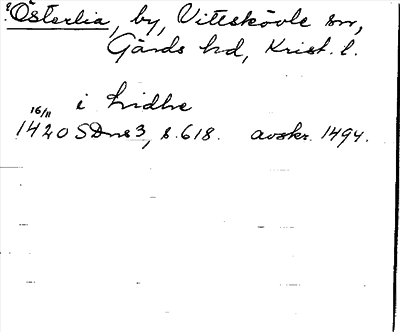 Österlia, by, Vittskövle sn,
Gärds hd, Krist. l.
i Lidhe
16/11
1420 SDns 3, s. 618. avskr. 1494.